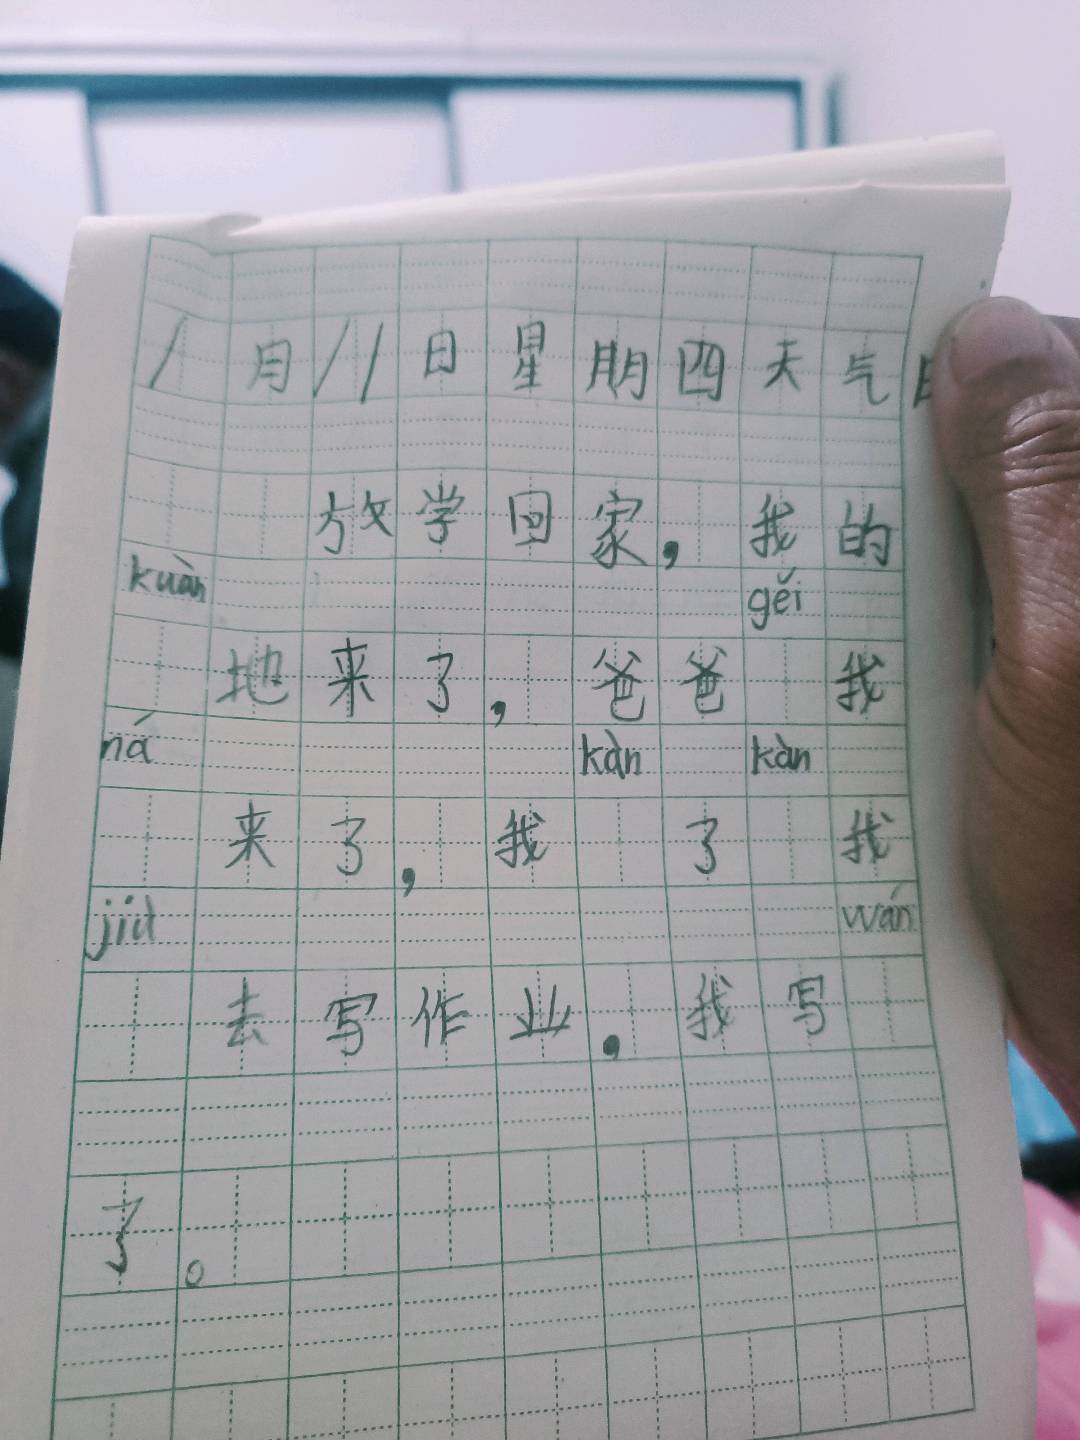 1月11日星期四天气
放学回家，我的
kuàn gěi
地来了，爸爸 我
ná kàn kàn
来了，我 了 我
jiù wán
去写作业，我写
了。